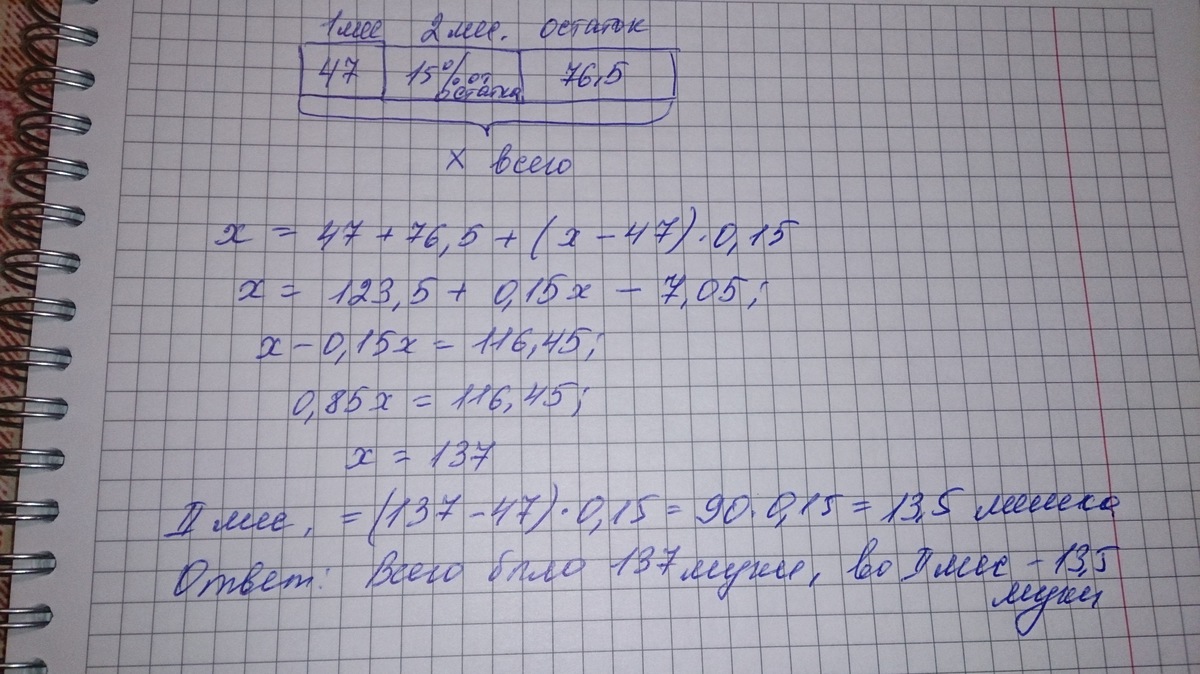 1мес 2 мес. остаток
47 15% от остатка 76,5
х всего
x = 47 + 76,5 + (x - 47) · 0,15
x = 123,5 + 0,15x - 7,05;
x - 0,15x = 116,45;
0,85x = 116,45;
x = 137
II мес, = (137 - 47) · 0,15 = 90 · 0,15 = 13,5 мешка
Ответ: Всего было 137 муки, во II мес - 13,5
муки